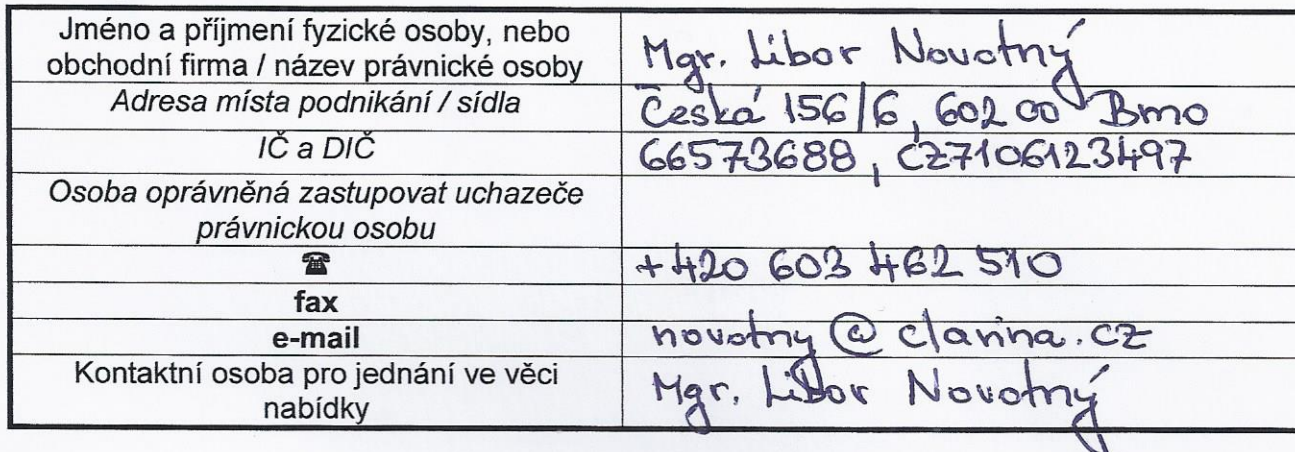 Jméno a příjmení fyzické osoby, nebo
obchodní firma / název právnické osoby
Mgr. Libor Novotný
Adresa místa podnikání / sídla
Česká 156/6, 602 00 Brno
IČ a DIČ
66573688, CZ7106123497
Osoba oprávněná zastupovat uchazeče
právnickou osobu
☎
+420 603 462 510
fax
e-mail
novotny@clarina.cz
Kontaktní osoba pro jednání ve věci
nabídky
Mgr. Libor Novotný